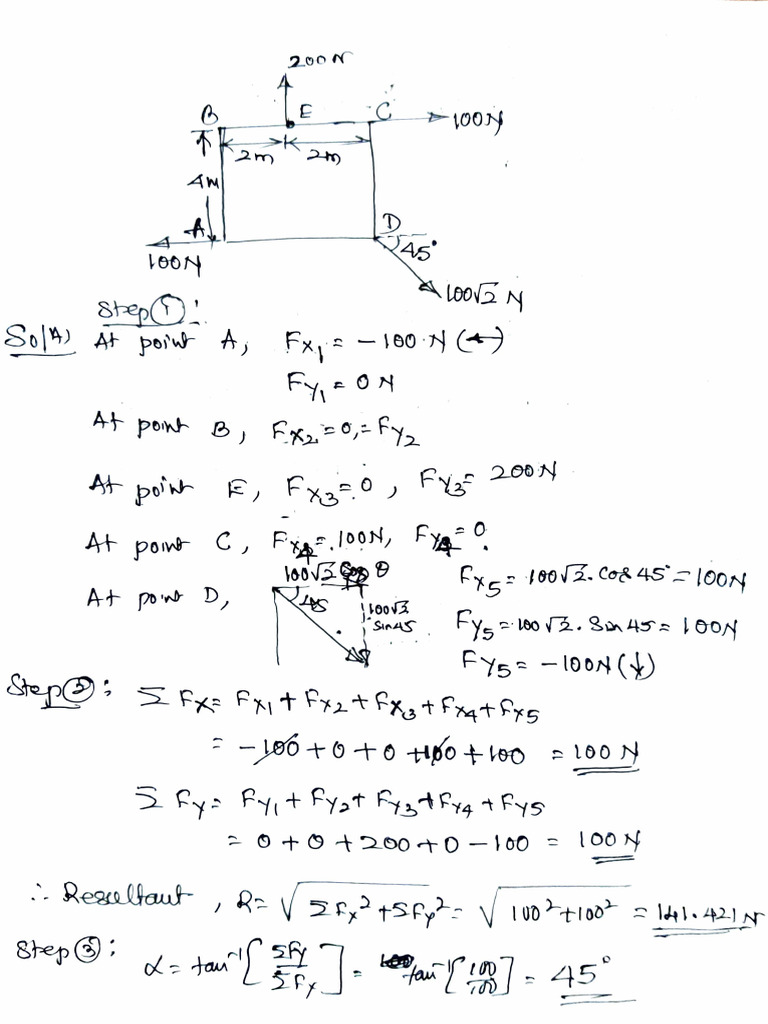 200N
B E C 100N
2m 2m
4m
A D 45°
100N
100√2 N
Step ①:
Sol(A) At point A, Fx₁ = -100 N (←)
Fy₁ = 0 N
At point B, Fx₂ = 0, = Fy₂
At point E, Fx₃ = 0, Fy₃ = 200N
At point C, Fx₄ = 100N, Fy₄ = 0.
100√2 cos θ
At point D, 45 100√2 sin45
Fx₅ = 100√2. cos 45° = 100N
Fy₅ = 100√2. Sin 45 = 100N
Fy₅ = -100N (↓)
Step ②: Σ Fx = Fx₁ + Fx₂ + Fx₃ + Fx₄ + Fx₅
= -100 + 0 + 0 +100 + 100 = 100 N
Σ Fy = Fy₁ + Fy₂ + Fy₃ + Fy₄ + Fy₅
= 0 + 0 + 200 + 0 - 100 = 100 N
∴ Resultant, R = √ΣFx² + ΣFy² = √100² + 100² = 141.421 N
Step ③:
α = tan⁻¹[ΣFy/ΣFx] = tan⁻¹[100/100] = 45°